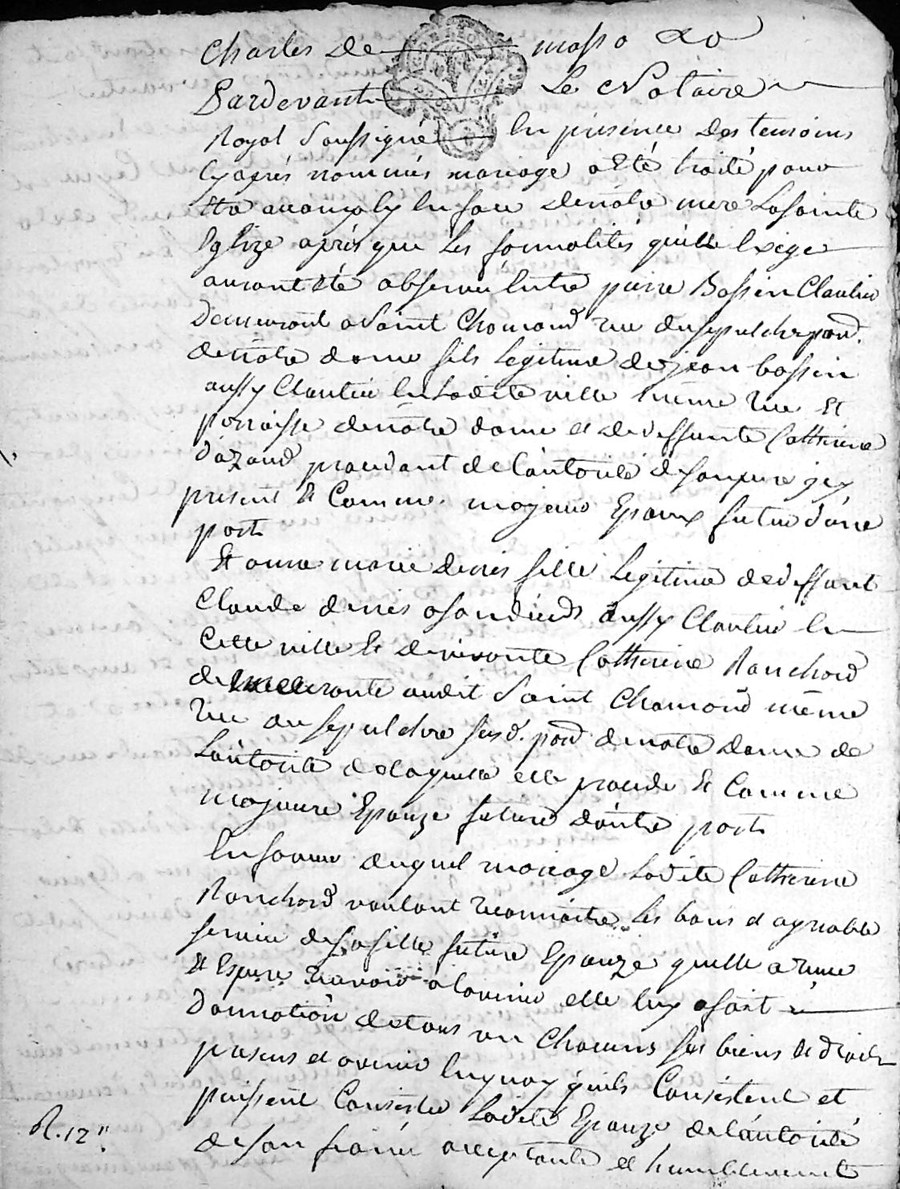 Charles de masso &c
Pardevant Le Notaire
Royal Soussigné En presence des temoins
Cyaprés nommés mariage a Eté traité pour
Etre acomply En face de nôtre mere La sainte
Eglize aprés que Les formalités quelle Exige
auront été observé Entre pierre Bassen Cloutier
demeurant a Saint Chamond rue du sepulchre par.
de nôtre dame fils Legitime de jean bassen
aussy Cloutier En Ladite ville meme rue Et
parroisse de nôtre dame et de deffunte Catherine
dazaud procedant de L'autorité de son pere icy
present Et Comme majeur Epoux futur d'une
part
Et anne marie denis fille Legitime de deffunt
Claude denis aussy Cloutier En
Cette ville Et de vivante Catherine Ranchond
demeurante audit Saint Chamond même
rue du sepulchre susd. par. de nôtre dame de
L'autorité de laquelle elle procede Et Comme
majeure Epouze future d'autre part
En faveur duquel mariage Ladite Catherine
Ranchond voulant reconnoitre Les bons et agreable
service de sa fille future Epouze quelle a reçue
Et Espere recevoir a l'avenir elle luy a fait
donnation de tous un Chacuns ses biens Et droits
presens et avenir Enquoy quils Consistent et
puissent Consister Ladite Epouze de L'autorité
de son fiancé acceptante et humblement
R. 12 s.